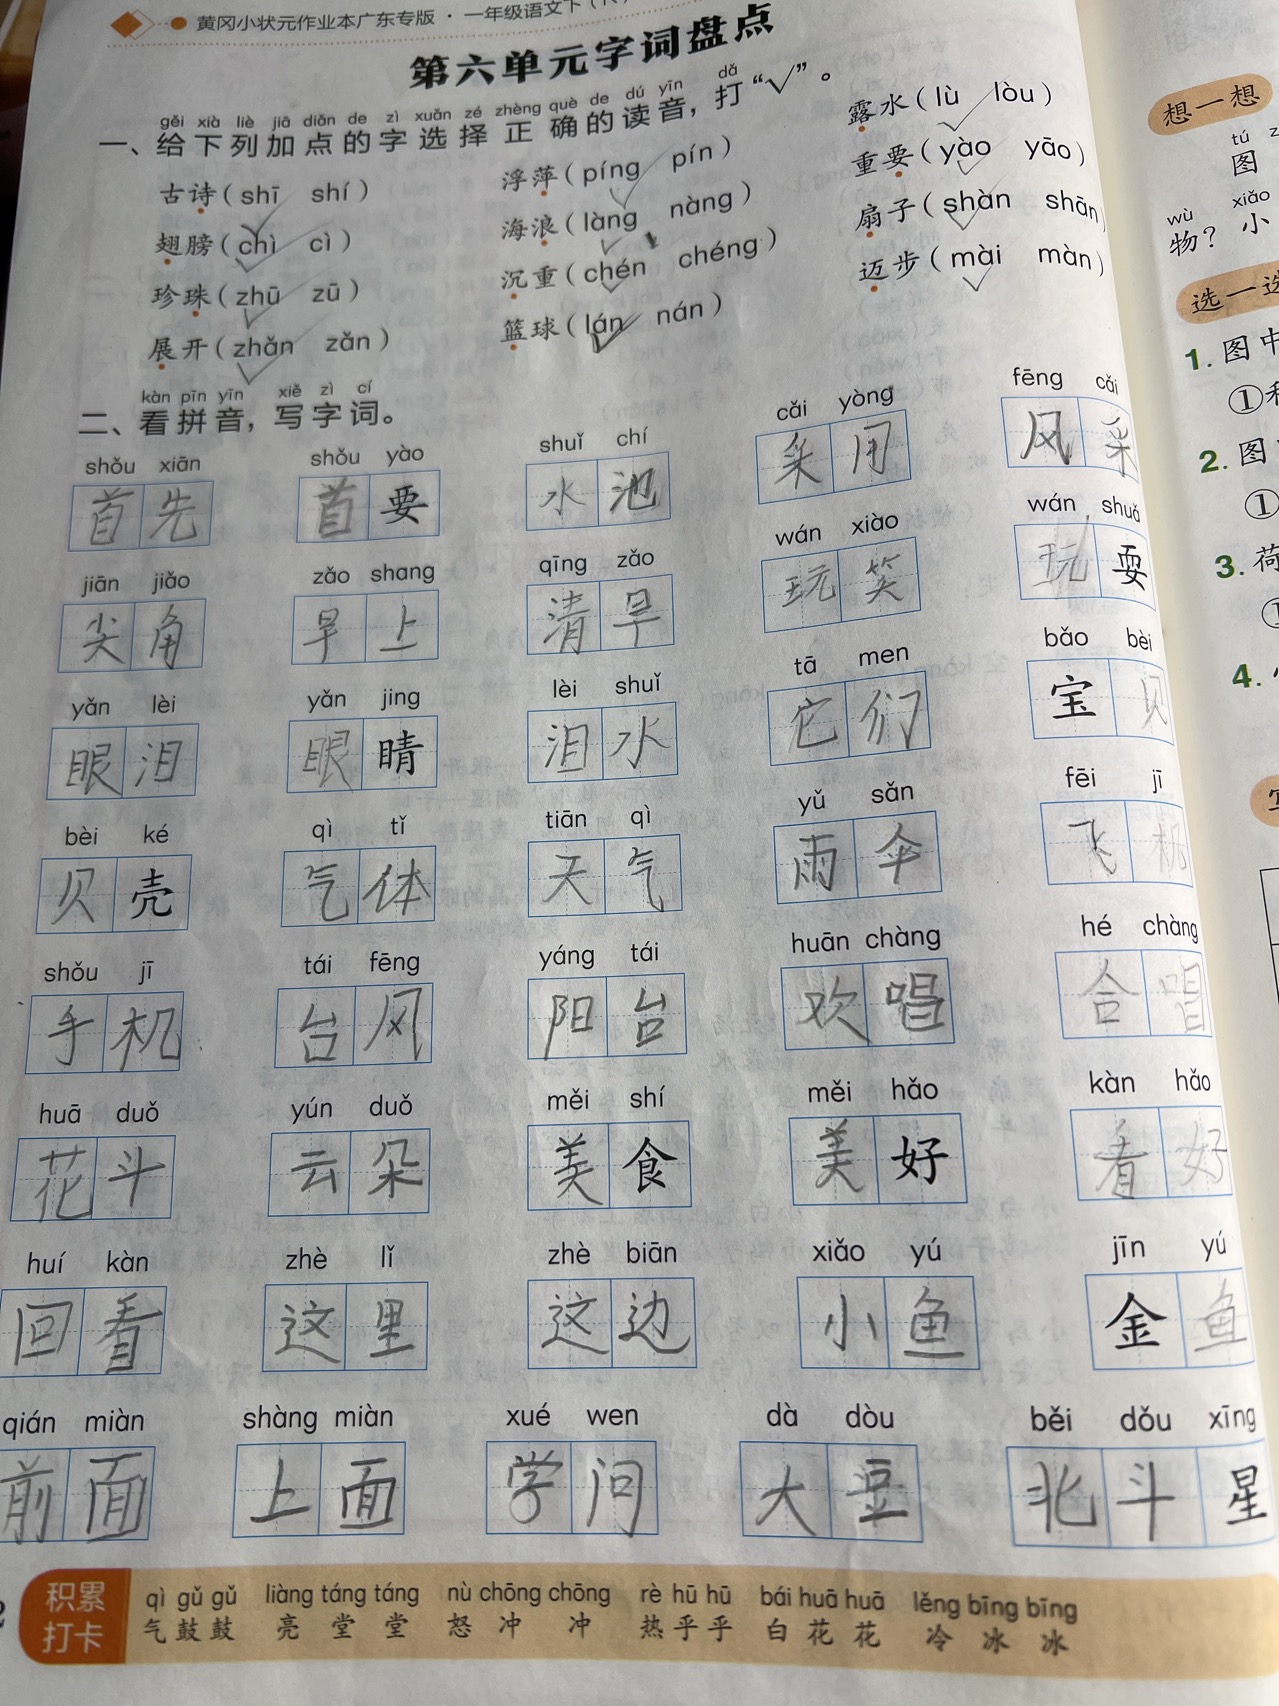 黄冈小状元作业本广东专版·一年级语文下
第六单元字词盘点
gěi xià liè jiā diǎn de zì xuǎn zé zhèng què de dú yīn dǎ
一、给下列加点的字选择正确的读音，打“√”。
古诗(shī shí) 浮萍(píng pín) 露水(lù lòu)
翅膀(chì cì) 海浪(làng nàng) 重要(yào yāo)
珍珠(zhū zū) 沉重(chén chéng) 扇子(shàn shān)
展开(zhǎn zǎn) 篮球(lán nán) 迈步(mài màn)
kàn pīn yīn xiě zì cí
二、看拼音，写字词。
shǒu xiān shǒu yào shuǐ chí cǎi yòng fēng cǎi
首先 首要 水池 采用 风采
jiān jiǎo zǎo shang qīng zǎo wán xiào wán shuǎ
尖角 早上 清早 玩笑 玩耍
yǎn lèi yǎn jing lèi shuǐ tā men bǎo bèi
眼泪 眼睛 泪水 它们 宝贝
bèi ké qì tǐ tiān qì yǔ sǎn fēi jī
贝壳 气体 天气 雨伞 飞机
shǒu jī tái fēng yáng tái huān chàng hé chàng
手机 台风 阳台 欢唱 合唱
huā duǒ yún duǒ měi shí měi hǎo kàn hǎo
花斗 云朵 美食 美好 看好
huí kàn zhè lǐ zhè biān xiǎo yú jīn yú
回看 这里 这边 小鱼 金鱼
qián miàn shàng miàn xué wen dà dòu běi dǒu xīng
前面 上面 学问 大豆 北斗星
积累打卡
qì gǔ gǔ liàng táng táng nù chōng chōng rè hū hū bái huā huā lěng bīng bīng
气鼓鼓 亮堂堂 怒冲冲 热乎乎 白花花 冷冰冰
想一想
tú
图
wù xiǎo
物？小
选一选
1.图中
①
2.图
①
3.荷
①
4.